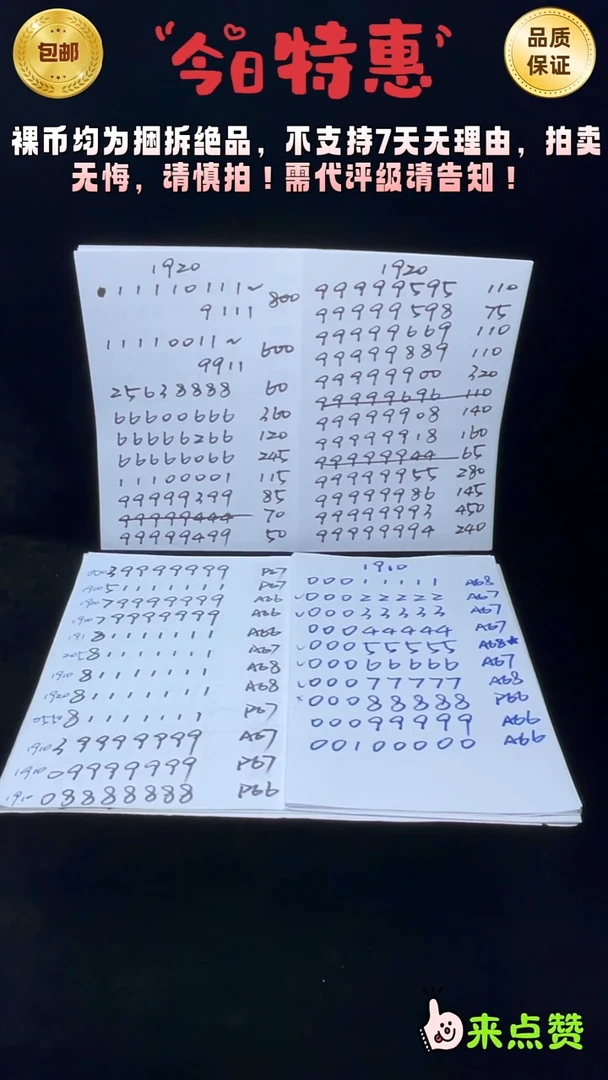 包邮
今日特惠
品质
保证
裸币均为捆拆绝品，不支持7天无理由，拍卖
无悔，请慎拍！需代评级请告知！
1920
11110111~ 800
9111
11110011~ 600
9911
25638888 60
66600666 360
66666266 120
66666066 245
11100001 115
99999399 85
99999444 70
99999499 50
1920
99999595 110
99999598 75
99999669 110
99999889 110
99999900 320
99999696 110
99999908 140
99999918 160
99999944 65
99999955 280
99999986 145
99999993 450
99999994 240
39999999 P67
51111111 P67
79999999 A66
79999999 A66
1111111 A66
2058 81111111 A67
1910 81111111 A68
1920 81111111 A68
81111111 P67
1910 39999999 A67
1910 09999999 P67
08888888 P66
1910
00011111 A68
00022222 A67
00033333 A67
00044444 A67
00055555 A68★
00066666 A67
00077777 A68
00088888 P66
00099999 A66
00100000 A66
来点赞